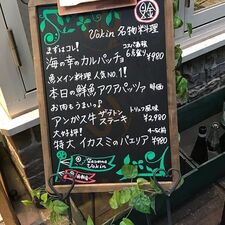 Vokin 名物料理
まずはコレ!
海の幸のカルパッチョ
魚メイン料理 人気NO.1!
本日の鮮魚アクアパッツァ 時価
お肉もうまいっ♪
アンガス牛 ザブトンステーキ トリュフ風味 ¥2,980
大好評!
特大 イカスミのパエリア 4~5人前 ¥2,980